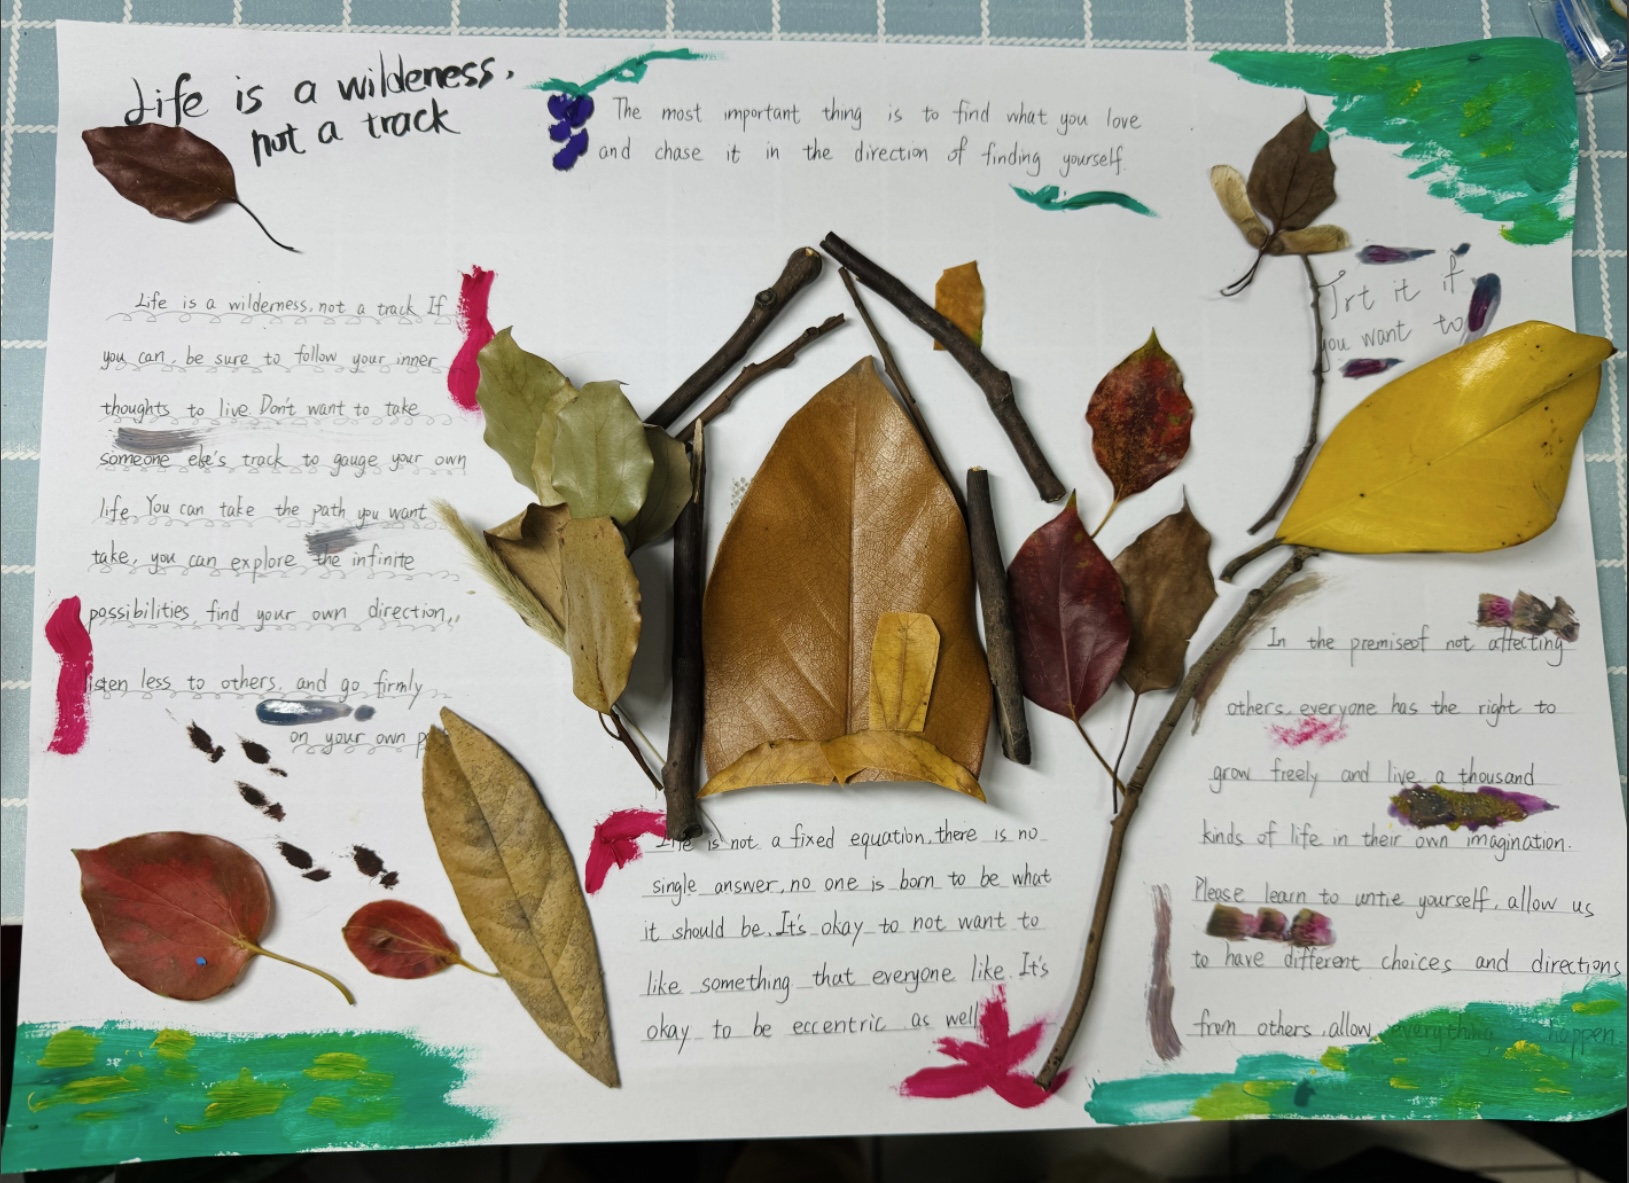 Life is a wilderness,
not a track
The most important thing is to find what you love
and chase it in the direction of finding yourself.
Life is a wilderness, not a track If
you can, be sure to follow your inner
thoughts to live Don't want to take
someone else's track to gauge your own
life. You can take the path you want
take, you can explore the infinite
possibilities, find your own direction,
listen less to others, and go firmly
on your own
Life is not a fixed equation, there is no
single answer, no one is born to be what
it should be. It's okay to not want to
like something that everyone like. It's
okay to be eccentric as well
Trt it if
you want to
In the premiseof not affecting
others, everyone has the right to
grow freely and live a thousand
kinds of life in their own imagination.
Please learn to untie yourself, allow us
to have different choices and directions
from others, allow everything to happen.